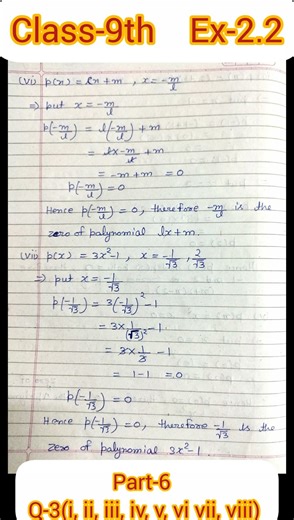 Class-9th Ex-2.2
(vi) p(x) = lx+m , x = -m/l
⇒ put x = -m/l
p(-m/l) = l(-m/l) + m
= l × -m/l + m
= -m+m = 0
p(-m/l) = 0
Hence p(-m/l) = 0, therefore -m/l is the
zero of polynomial lx+m.
(vii) p(x) = 3x²-1, x = -1/√3, 2/√3
⇒ put x = -1/√3
p(-1/√3) = 3(-1/√3)² -1
= 3×1/(√3)² -1
= 3×1/3 - 1
= 1-1 = 0
p(-1/√3) = 0
Hence p(-1/√3) = 0, therefore -1/√3 is the
zero of polynomial 3x²-1.
Part-6
Q-3(i, ii, iii, iv, v, vi vii, viii)